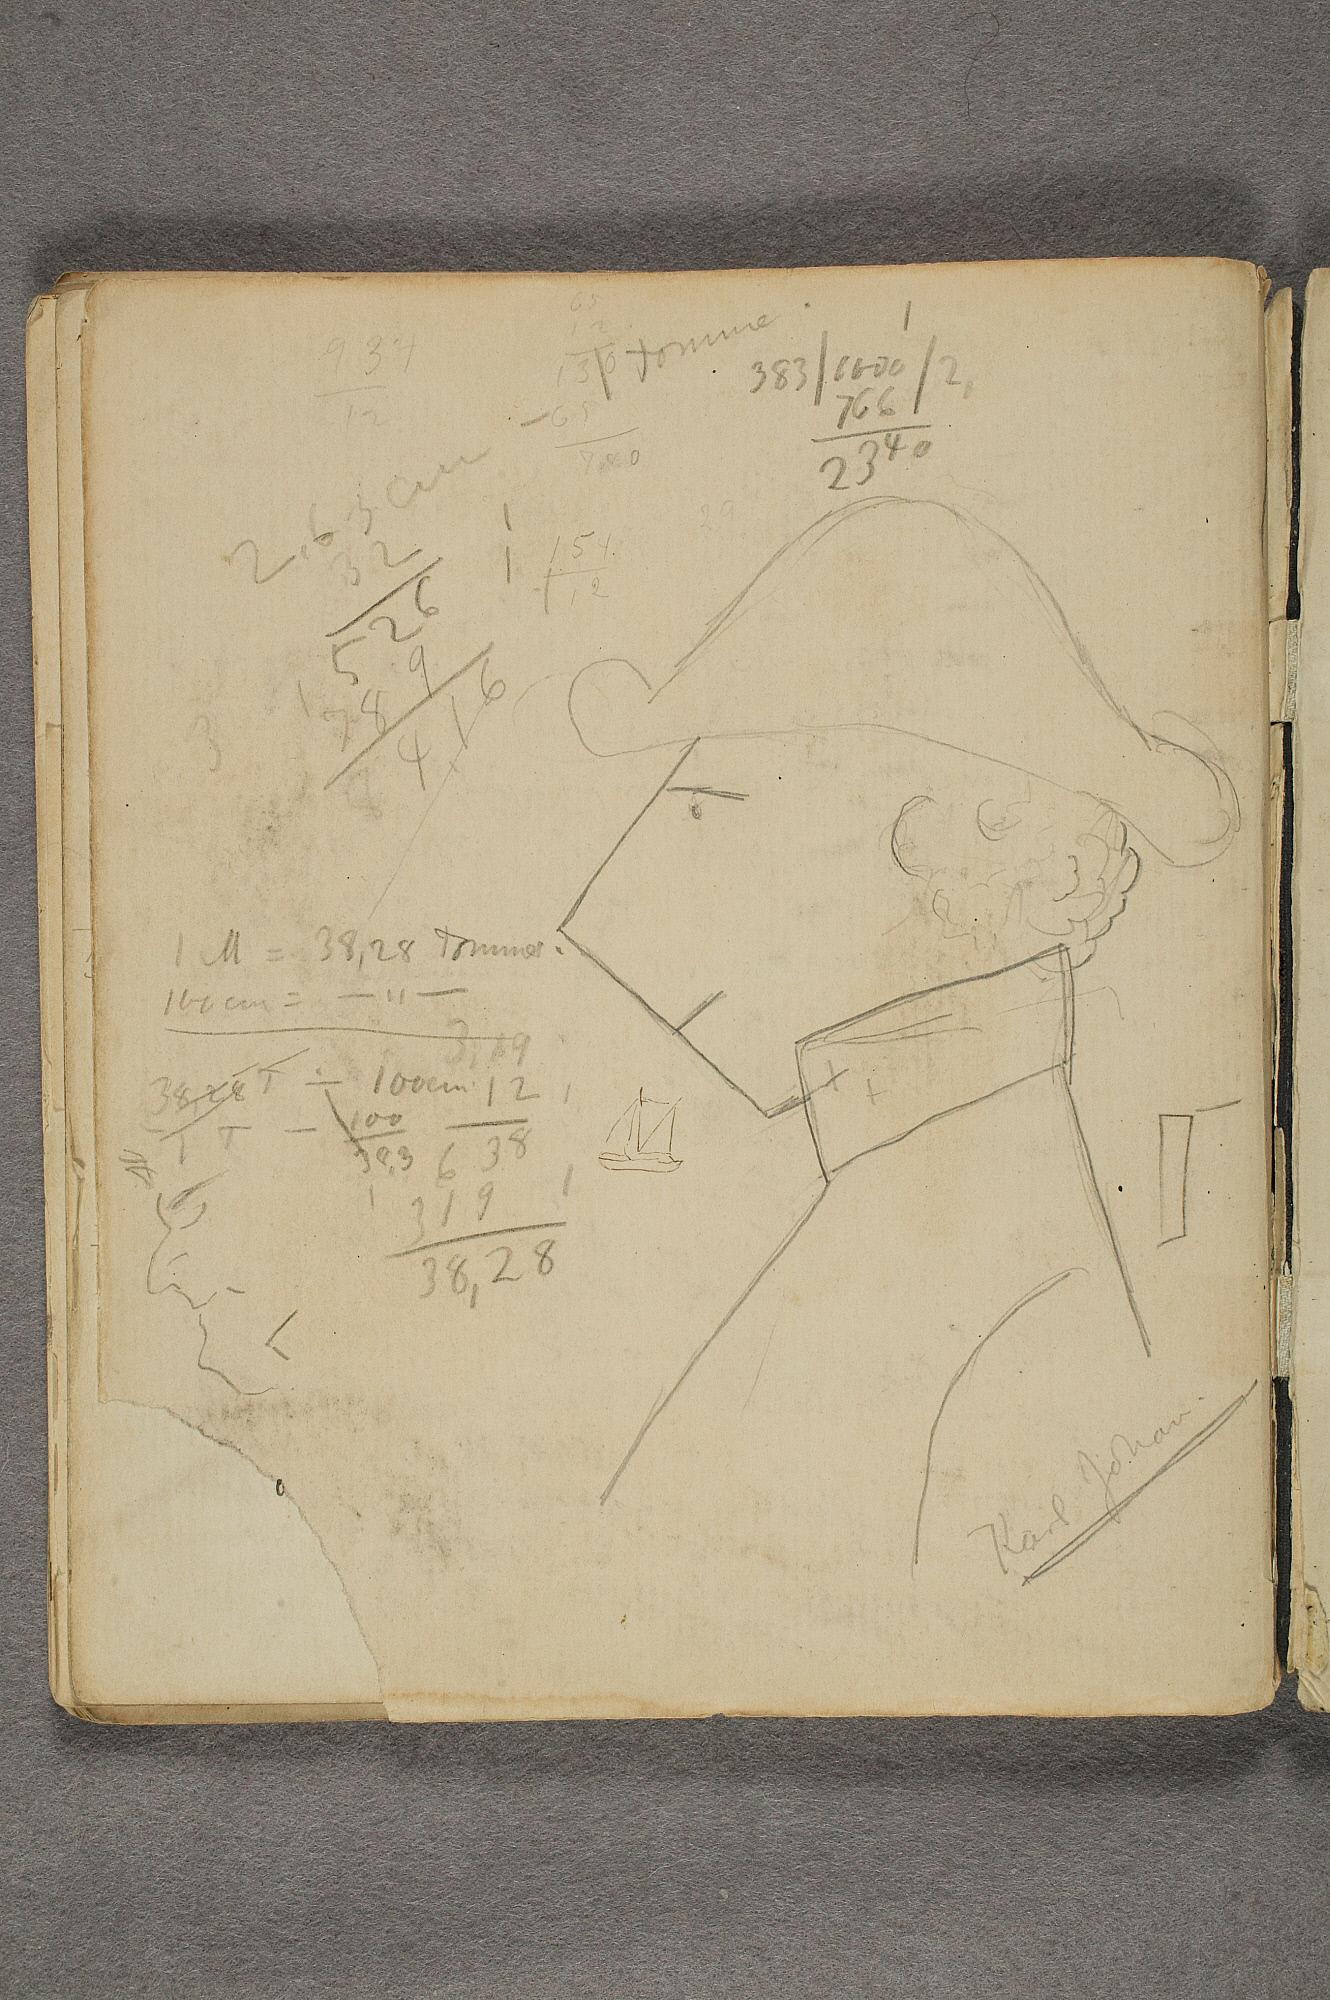 65
12
130 | tomme
65
780
934
12
1
383 | 1000 | 2,
766
2340
2,63 cm
32
526
789
8416
154
12
29
3
1 M = 38,28 Tommer.
100 cm = — " —
3,19
12
638
319
38,28
38,28 T ÷ 100 cm
1 T — 100
38,3
Karl Johan.